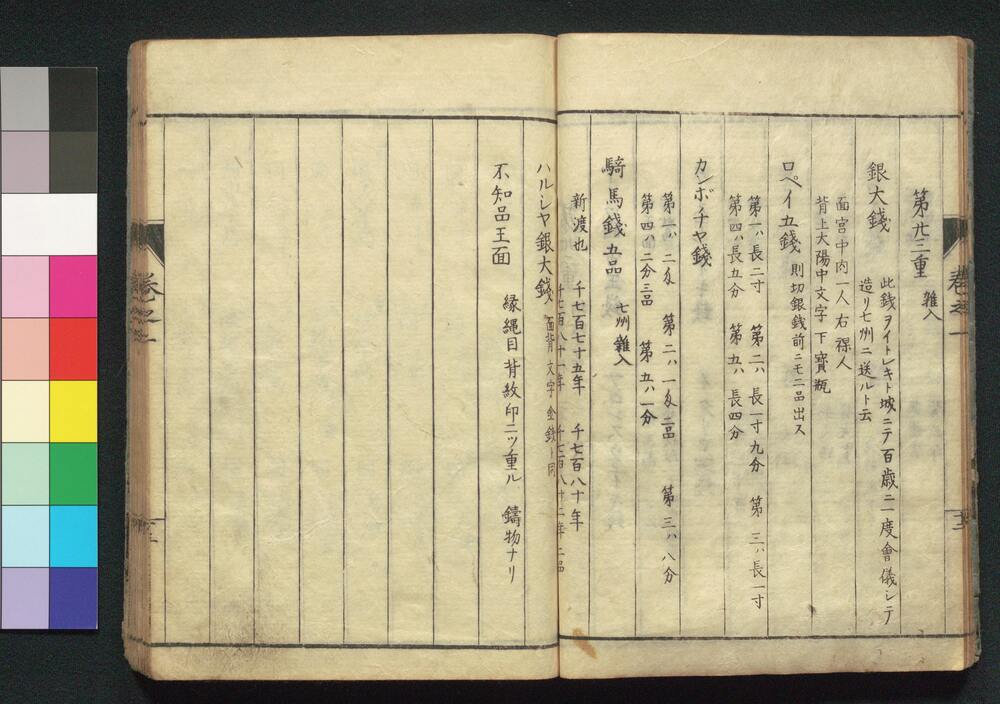 第九三重
雜入
銀大錢
此錢ヲイトレキト城ニテ百歳ニ一度會儀シテ
造リ七州ニ送ルト云
面宮中肉一人右裸人
背上大陽中文字下寶瓶
ロペイ五錢 則切銀錢前ニモ二品出ス
第一ハ長二寸 第二ハ長一寸九分 第三ハ長一寸
第四ハ長五分 第五ハ長四分
カンボチヤ錢
第一ハ二匁 第二ハ一匁二品 第三ハ八分
第四ハ二分三品 第五ハ一分
騎馬錢五品 七州雜入
新渡也 千七百七十五年 千七百八十年
千七百八十一年 千七百八十二年二品
ハルシヤ銀大錢 面背文字金錢ト同
不知品王面 縁縄目背紋印二ツ重ル 鑄物ナリ
卷之一
卷之一